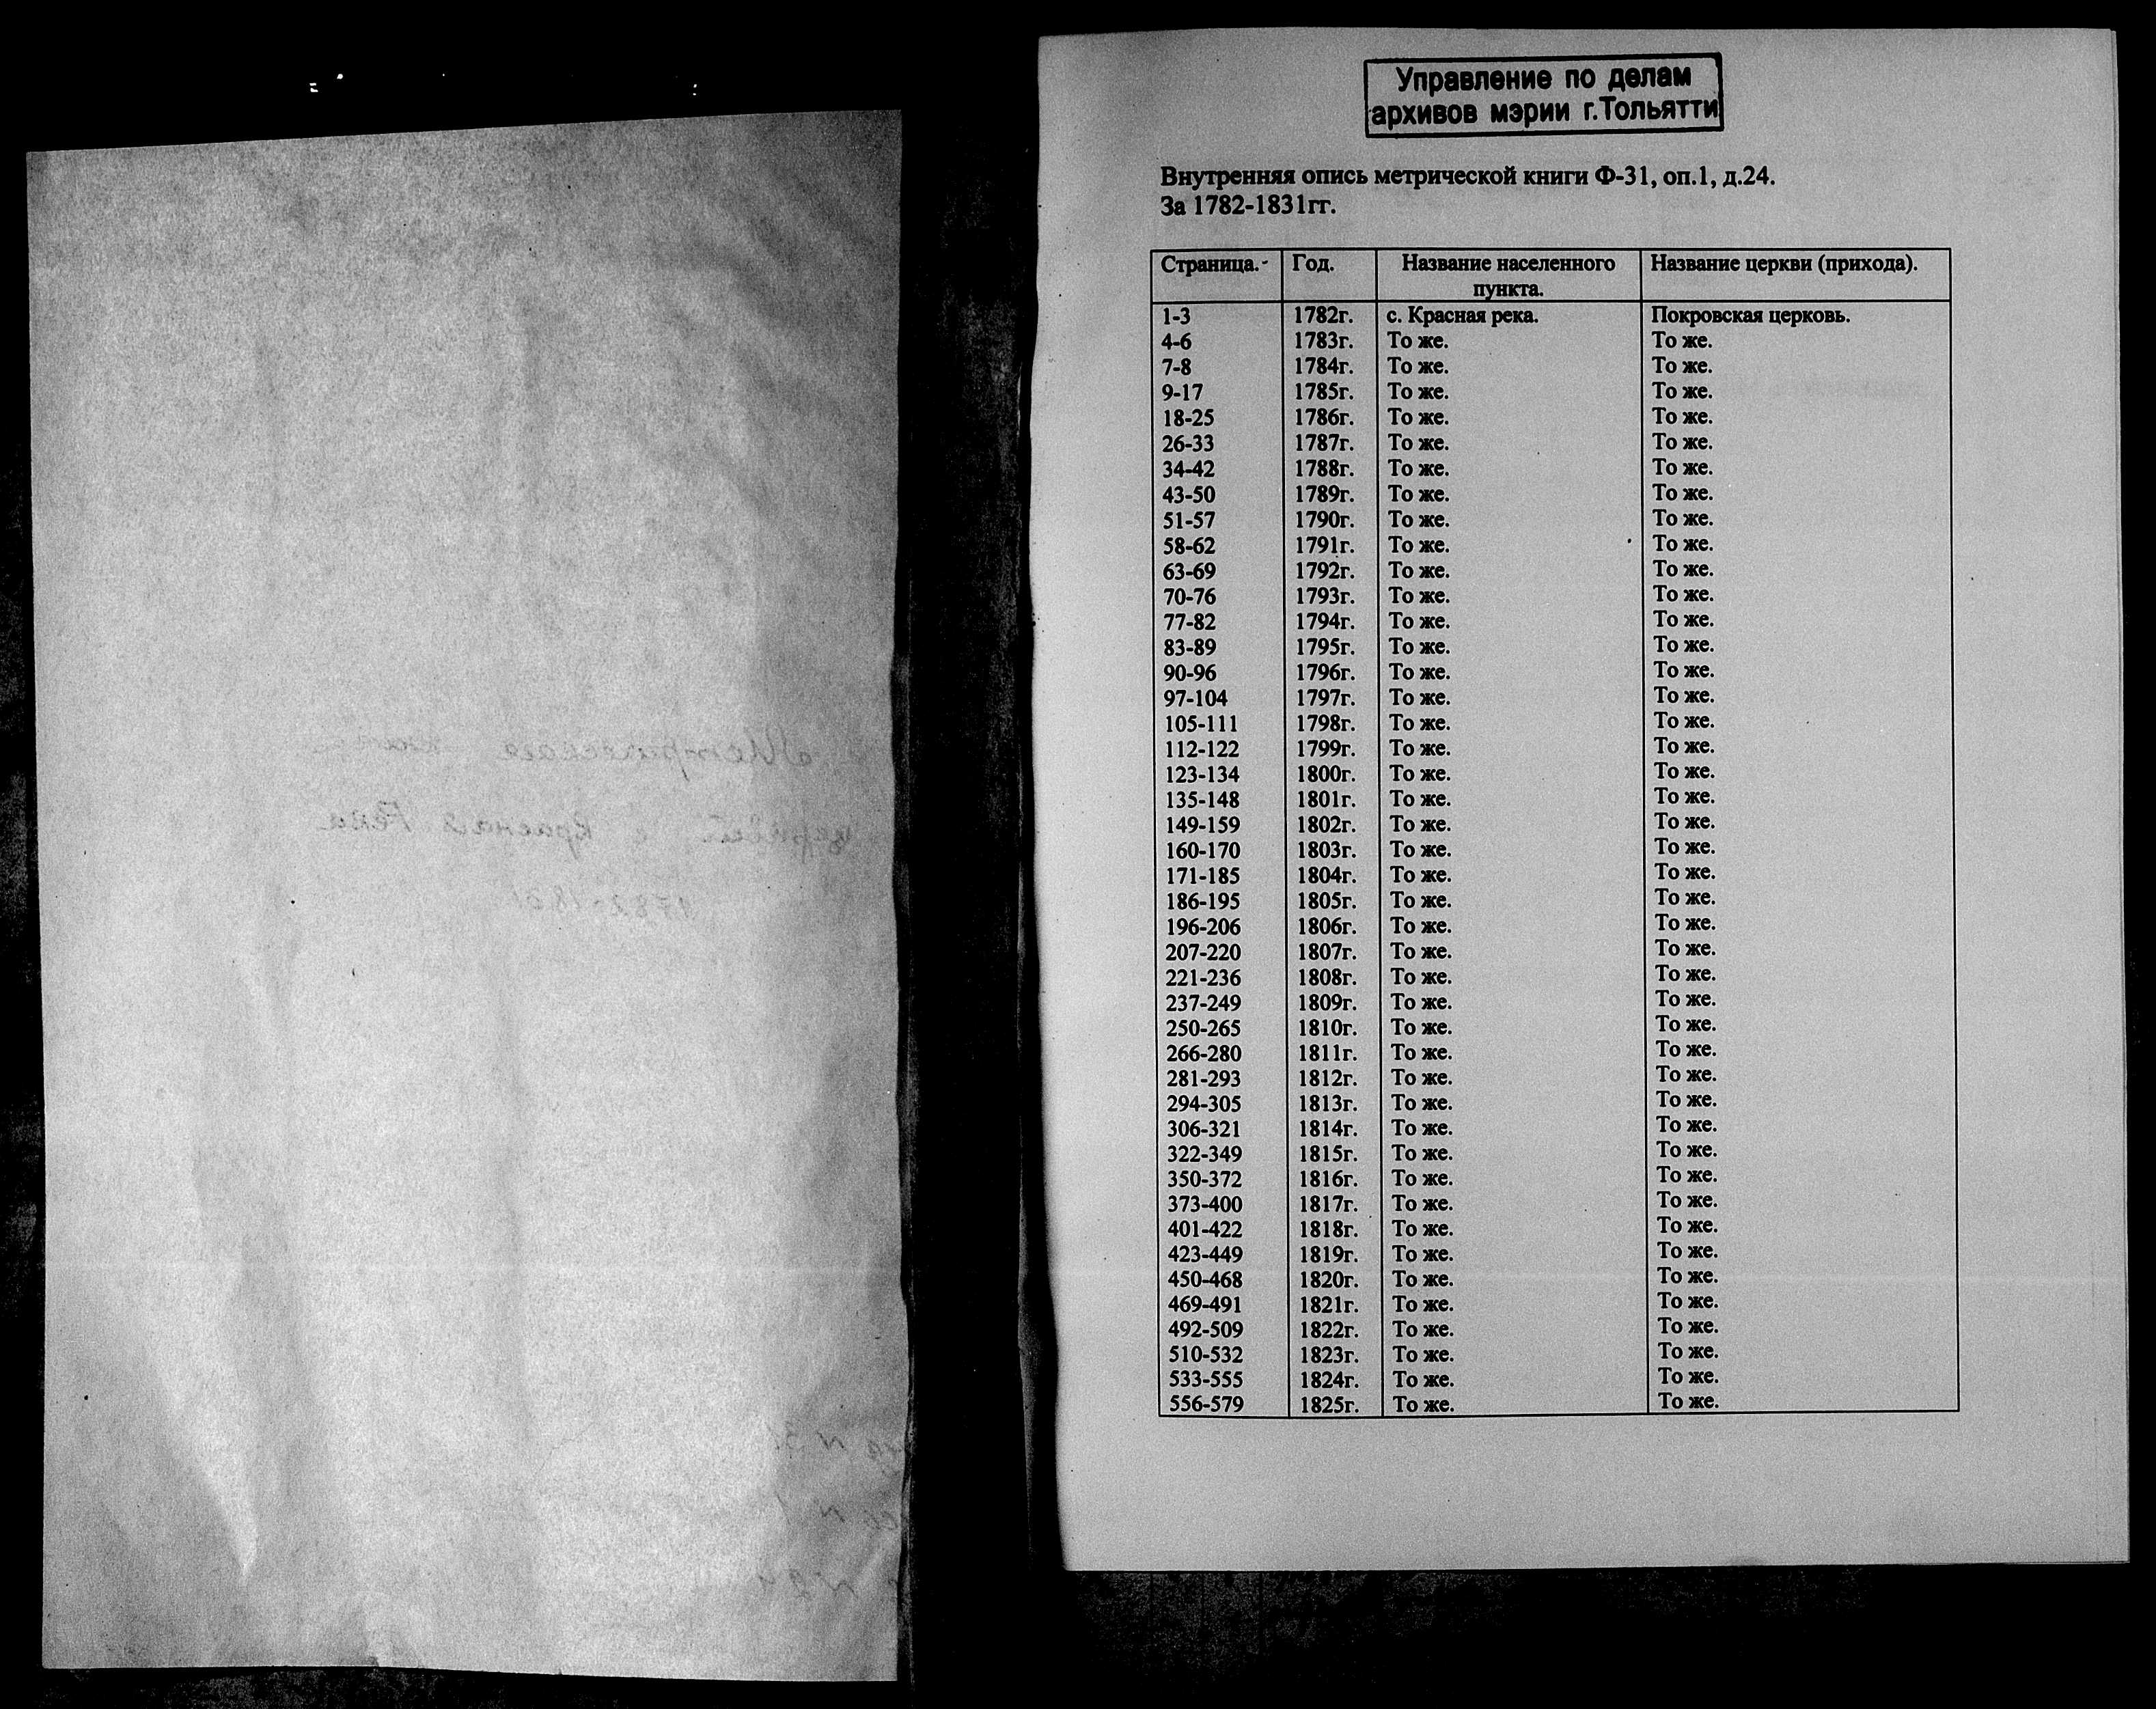 Управление по делам
архивов мэрии г.Тольятти
Внутренняя опись метрической книги Ф-31, оп.1, д.24.
За 1782-1831гг.
Страница. Год. Название населенного пункта. Название церкви (прихода).
1-3 1782г. с. Красная река. Покровская церковь.
4-6 1783г. То же. То же.
7-8 1784г. То же. То же.
9-17 1785г. То же. То же.
18-25 1786г. То же. То же.
26-33 1787г. То же. То же.
34-42 1788г. То же. То же.
43-50 1789г. То же. То же.
51-57 1790г. То же. То же.
58-62 1791г. То же. То же.
63-69 1792г. То же. То же.
70-76 1793г. То же. То же.
77-82 1794г. То же. То же.
83-89 1795г. То же. То же.
90-96 1796г. То же. То же.
97-104 1797г. То же. То же.
105-111 1798г. То же. То же.
112-122 1799г. То же. То же.
123-134 1800г. То же. То же.
135-148 1801г. То же. То же.
149-159 1802г. То же. То же.
160-170 1803г. То же. То же.
171-185 1804г. То же. То же.
186-195 1805г. То же. То же.
196-206 1806г. То же. То же.
207-220 1807г. То же. То же.
221-236 1808г. То же. То же.
237-249 1809г. То же. То же.
250-265 1810г. То же. То же.
266-280 1811г. То же. То же.
281-293 1812г. То же. То же.
294-305 1813г. То же. То же.
306-321 1814г. То же. То же.
322-349 1815г. То же. То же.
350-372 1816г. То же. То же.
373-400 1817г. То же. То же.
401-422 1818г. То же. То же.
423-449 1819г. То же. То же.
450-468 1820г. То же. То же.
469-491 1821г. То же. То же.
492-509 1822г. То же. То же.
510-532 1823г. То же. То же.
533-555 1824г. То же. То же.
556-579 1825г. То же. То же.